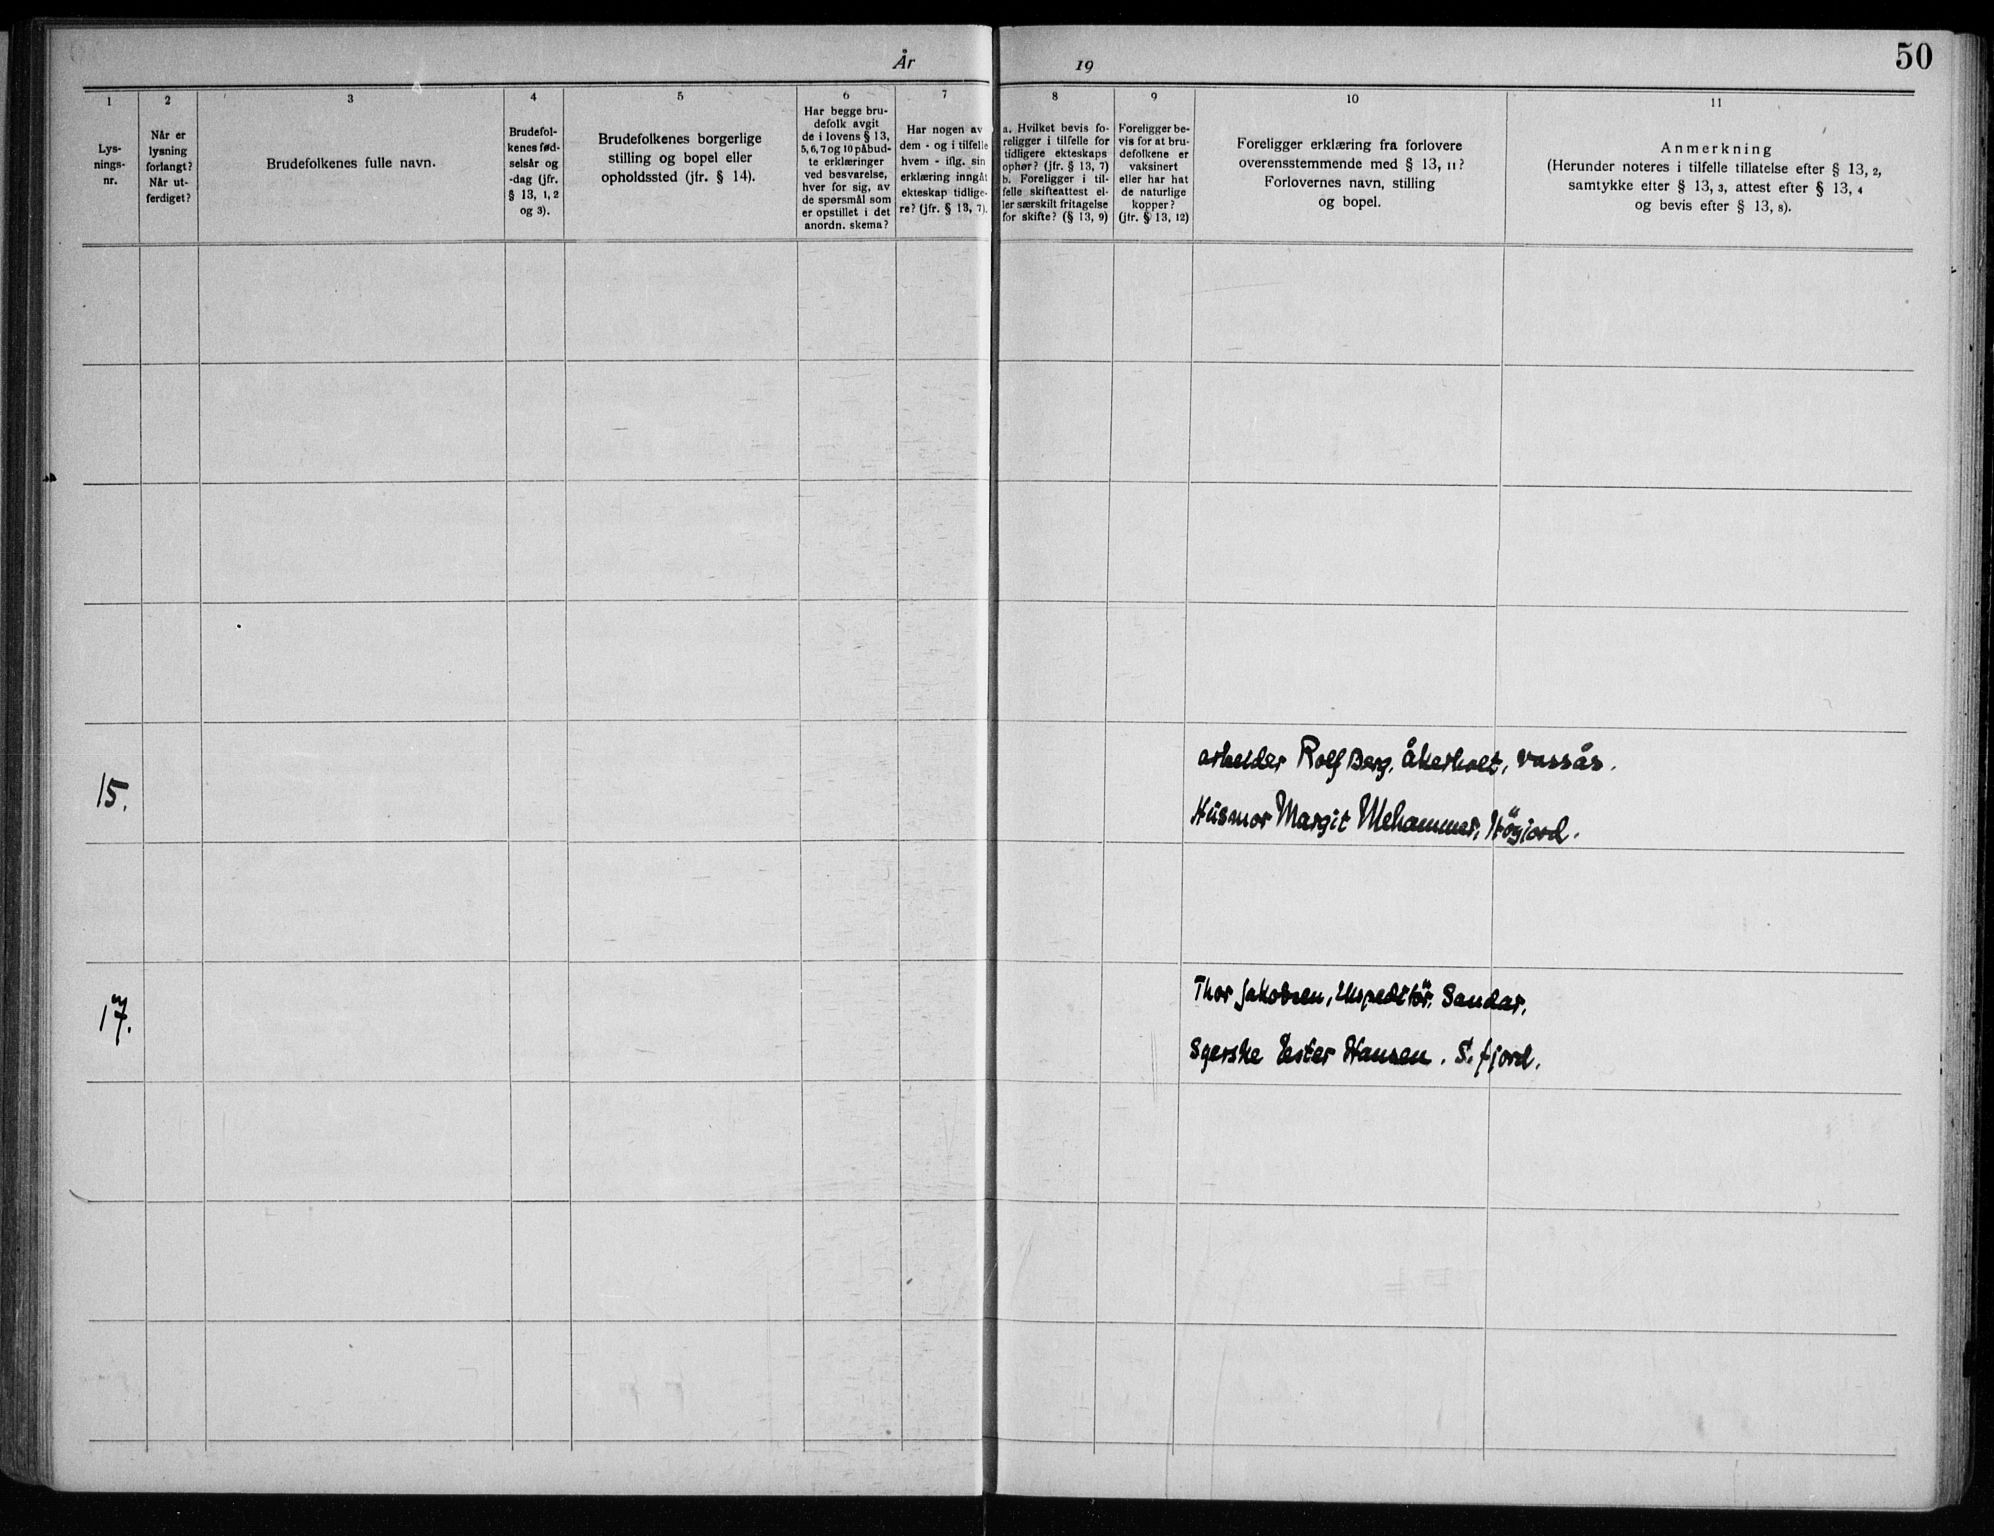 År 19
50
1
2
3
4
5
6
7
8
9
10
11
Lys-
nings-
nr.
Når er
lysning
forlangt?
Når ut-
ferdiget?
Brudefolkenes fulle navn.
Brudefol-
kenes fød-
selsår og
-dag (jfr.
§ 13, 1, 2
og 3).
Brudefolkenes borgerlige
stilling og bopel eller
opholdssted (jfr. § 14).
Har begge bru-
defolk avgit
de i lovens § 13,
5, 6, 7 og 10 påbud-
te erklæringer
ved besvarelse,
hver for sig, av
de spørsmål som
er opstillet i det
anordn. skema?
Har nogen av
dem - og i tilfelle
hvem - iflg. sin
erklæring inngåt
ekteskap tidlige-
re? (jfr. § 13, 7).
a. Hvilket bevis fo-
religger i tilfelle for
tidligere ekteskaps
ophør? (jfr. § 13, 7)
b. Foreligger i til-
felle skifteattest el-
ler særskilt fritagelse
for skifte? (§ 13, 9)
Foreligger be-
vis for at bru-
defolkene er
vaksinert
eller har hat
de naturlige
kopper?
(jfr. § 13, 12)
Foreligger erklæring fra forlovere
overensstemmende med § 13, 11?
Forlovernes navn, stilling
og bopel.
Anmerkning
(Herunder noteres i tilfelle tillatelse efter § 13, 2,
samtykke efter § 13, 3, attest efter § 13, 4
og bevis efter § 13, 8).
15.
arbeider Rolf Berg, åkerholt, vassås.
Husmor Margit Mehammer, Högjord.
17.
Thor Jakobsen, Ekspeditör, Sandar.
Syerske Ester Hansen. S. fjord.